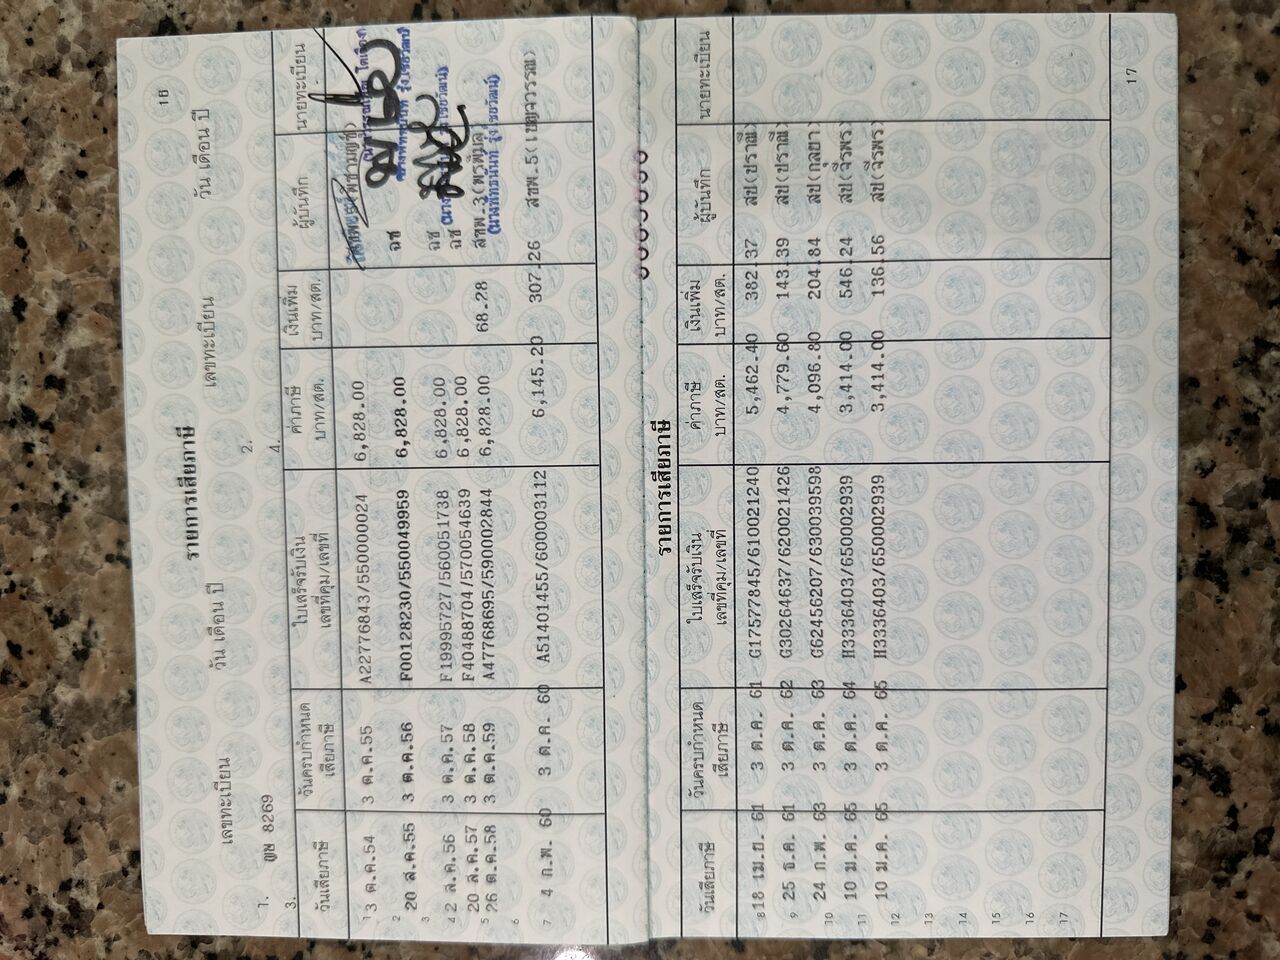 16
เลขทะเบียน วัน เดือน ปี เลขทะเบียน วัน เดือน ปี
1. 8269 2.
3. 4.
รายการเสียภาษี
วันเสียภาษี วันครบกำหนดเสียภาษี ใบเสร็จรับเงิน เลขที่คุม/เลขที่ ค่าภาษี บาท/สต. เงินเพิ่ม บาท/สต. ผู้บันทึก นายทะเบียน
1 3 ต.ค.54 3 ต.ค.55 A22776843/550000024 6,828.00
2 20 ส.ค.55 3 ต.ค.56 F00128230/550049959 6,828.00 ฉช
3
4 2 ส.ค.56 3 ต.ค.57 F19995727/560051738 6,828.00 ฉช
20 ส.ค.57 3 ต.ค.58 F40488704/570054639 6,828.00 ฉช
5 26 ต.ค.58 3 ต.ค.59 A47768695/590002844 6,828.00 68.28 สขพ.3(พรพิมล)
6
7 4 ก.พ. 60 3 ต.ค. 60 A51401455/600003112 6,145.20 307.26 สขพ.5(เบญจวรรณ)
รายการเสียภาษี
วันเสียภาษี วันครบกำหนดเสียภาษี ใบเสร็จรับเงิน เลขที่คุม/เลขที่ ค่าภาษี บาท/สต. เงินเพิ่ม บาท/สต. ผู้บันทึก นายทะเบียน
8 18 เม.ย. 61 3 ต.ค. 61 G17577845/610021240 5,462.40 382.37 สป(ปราณี)
9 25 ธ.ค. 61 3 ต.ค. 62 G30264637/620021426 4,779.60 143.39 สป(ปราณี)
10 24 ก.พ. 63 3 ต.ค. 63 G62456207/630039598 4,096.80 204.84 สป(กุลยา)
11 10 ม.ค. 65 3 ต.ค. 64 H3336403/650002939 3,414.00 546.24 สป(จีรพร)
10 ม.ค. 65 3 ต.ค. 65 H3336403/650002939 3,414.00 136.56 สป(จีรพร)
12
13
14
15
16
17
17